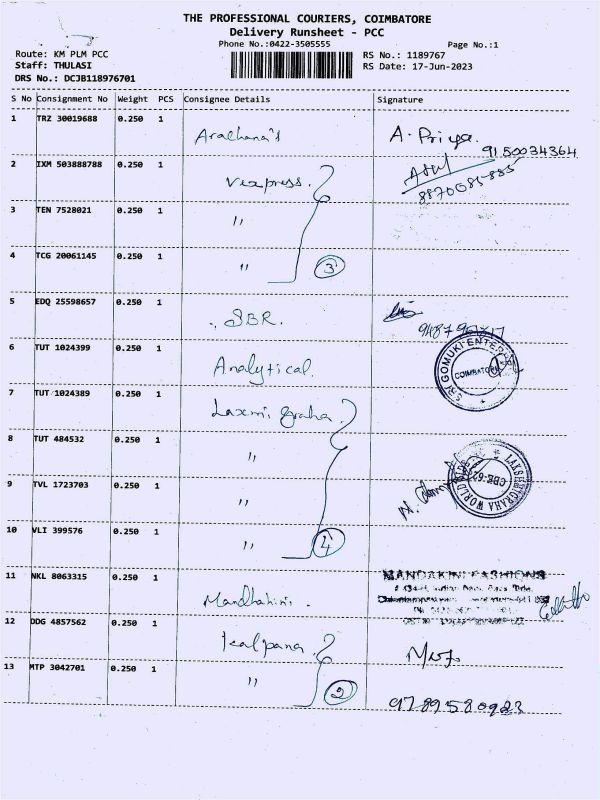 THE PROFESSIONAL COURIERS, COIMBATORE
Delivery Runsheet - PCC
Phone No.:0422-3505555
Page No.:1
Route: KM PLM PCC
Staff: THULASI
DRS No.: DCJB118976701
RS No.: 1189767
RS Date: 17-Jun-2023
S No Consignment No Weight PCS Consignee Details Signature
1 TRZ 30019688 0.250 1 Aradhana's A. Priya.
9150034364
2 IXM 503888788 0.250 1 Vexpress.
3 TEN 7528021 0.250 1 "
4 TCG 20061145 0.250 1 " 3
5 EDQ 25598657 0.250 1 SBR.
6 TUT 1024399 0.250 1 Analytical. SRI GOMUKI COIMBATORE
7 TUT 1024389 0.250 1 Laxmi graha
8 TUT 484532 0.250 1 "
9 TVL 1723703 0.250 1 "
10 VLI 399576 0.250 1 " 4
11 NKL 8063315 0.250 1 Mandhakini. MANDAKINI FASHIONS
12 DDG 4857562 0.250 1 Kalpana
13 MTP 3042701 0.250 1 " 2
9789580923